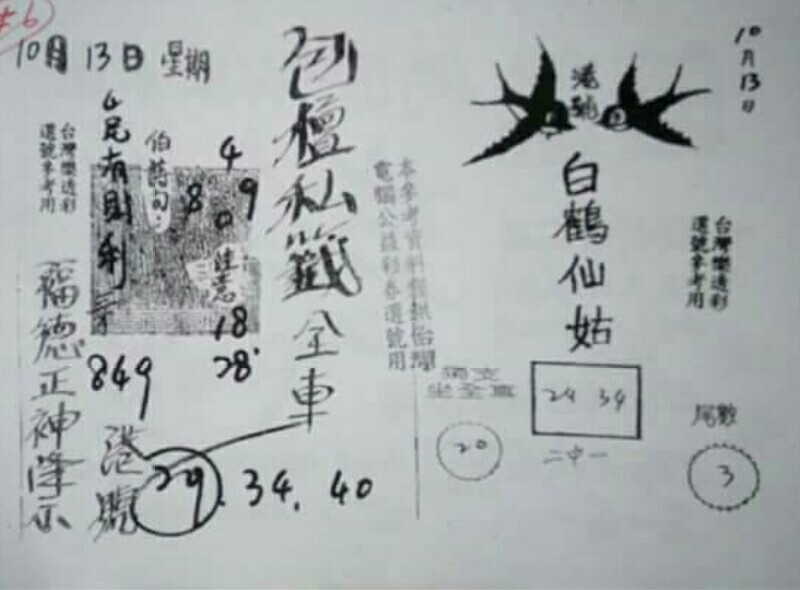 10月13日 星期
包壇私籤全車
4
8 9
0
注意
三
18
28
伯 詩句:
民有財利
849
台灣樂透彩
選號參考用
福德正神降示
港號
29. 34. 40
本參考資料僅供台灣
電腦公益彩券選號用
港號
白鶴仙姑
10月13日
台灣樂透彩
選號參考用
獨支
坐全車
20
24 34
二中一
尾數
3